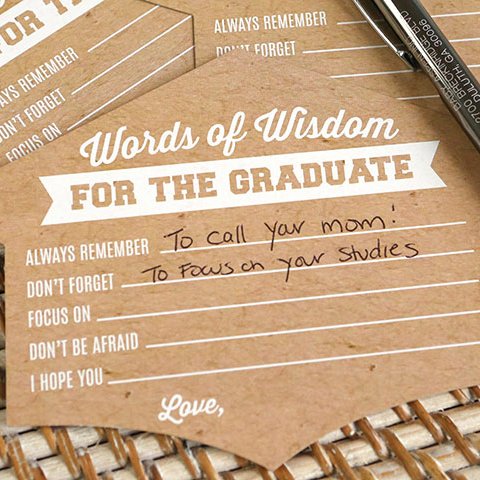 FOR T
ALWAYS REMEMBER
DON'T FORGET
FOCUS ON
ALWAYS REMEMBER
DON'T FORGET
DULUTH, GA 30096
Words of Wisdom
FOR THE GRADUATE
ALWAYS REMEMBER To call your mom!
DON'T FORGET To Focus on your studies
FOCUS ON
DON'T BE AFRAID
I HOPE YOU
Love,